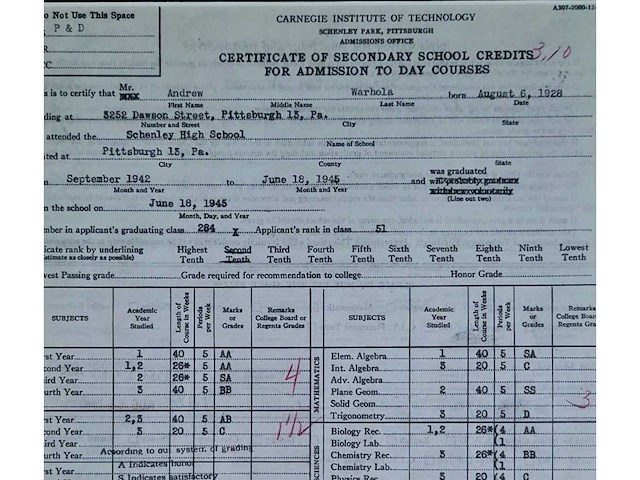 A397-2000-12
Do Not Use This Space
P & D
CARNEGIE INSTITUTE OF TECHNOLOGY
SCHENLEY PARK, PITTSBURGH
ADMISSIONS OFFICE
CERTIFICATE OF SECONDARY SCHOOL CREDITS
3.10
FOR ADMISSION TO DAY COURSES
s is to certify that Mr. Andrew Warhola born August 6, 1928
First Name Middle Name Last Name Date
ding at 3252 Dawson Street, Pittsburgh 13, Pa.
Number and Street City State
attended the Schenley High School
Name of School
ated at Pittsburgh 13, Pa.
City County State
m September 1942 to June 18, 1945 and was graduated
Month and Year Month and Year (Line out two)
n the school on June 18, 1945
Month, Day, and Year
mber in applicant's graduating class 284 Applicant's rank in class 51
icate rank by underlining
(estimate as closely as possible)
Highest Tenth Second Tenth Third Tenth Fourth Tenth Fifth Tenth Sixth Tenth Seventh Tenth Eighth Tenth Ninth Tenth Lowest Tenth
west Passing grade Grade required for recommendation to college Honor Grade
SUBJECTS Academic Year Studied Length of Course in Weeks Periods per Week Marks or Grades Remarks College Board or Regents Grades
rst Year 1 40 5 AA
cond Year 1,2 26* 5 AA
hird Year 2 26* 5 SA
ourth Year 3 40 5 BB
4
rst Year 2,3 40 5 AB
cond Year 3 20 5 C
1½
hird Year
ourth Year
According to our system of grading
rst Year A Indicates honor
cond Year S Indicates satisfactory
MATHEMATICS
SUBJECTS Academic Year Studied Length of Course in Weeks Periods per Week Marks or Grades Remarks College Board or Regents Gra
Elem. Algebra 1 40 5 SA
Int. Algebra 3 20 5 C
Adv. Algebra
Plane Geom. 2 40 5 SS
Solid Geom.
3
Trigonometry 3 20 5 D
SCIENCES
Biology Rec. 1,2 26* (4 AA
Biology Lab. (1
Chemistry Rec. 3 26* (4 BB
Chemistry Lab. (1
Physics Rec. 3 20 (4 C